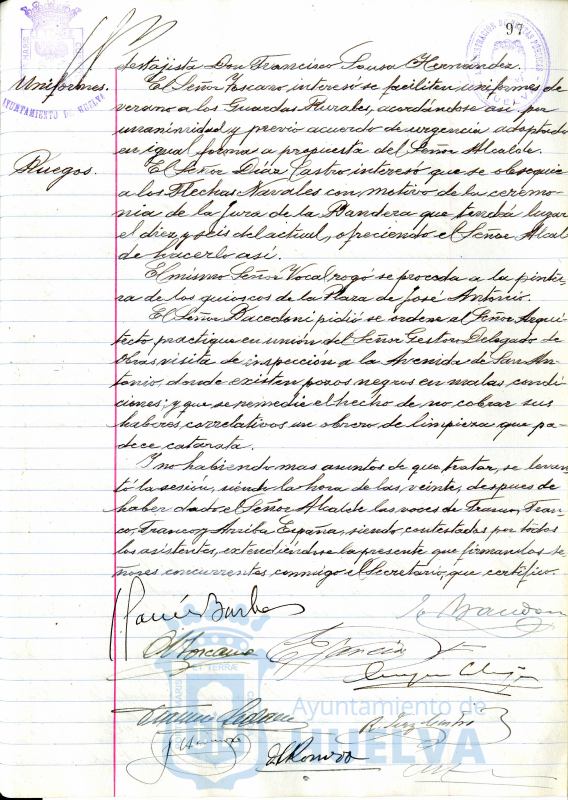 97
AYUNTAMIENTO DE HUELVA
Uniformes.
Ruegos.
destajista Don Francisco Sousa Hernández.
El Señor Toscano interesó se faciliten uniformes de
verano a los Guardas Rurales, acordándose así por
unanimidad y previo acuerdo de urgencia adoptado
en igual forma a propuesta del Señor Alcalde.
El Señor Díaz Castro interesó que se obsequie
a los Flechas Navales con motivo de la ceremo-
nia de la Jura de la Bandera que tendrá lugar
el diez y seis del actual, ofreciendo el Señor Alcal-
de hacerlo así.
El mismo Señor Vocal rogó se proceda a la pintu-
ra de los quioscos de la Plaza de José Antonio.
El Señor pidió se ordene al Señor Arqui-
tecto, practique en unión del Señor Gestor Delegado de
Obras visita de inspección a la Avenida de San An-
tonio, donde existen pozos negros en malas condi-
ciones; y que se remedie el hecho de no cobrar sus
haberes correlativos un obrero de limpieza que pa-
dece catarata.
Y no habiendo mas asuntos de que tratar, se levan-
tó la sesión, siendo la hora de las veinte, despues de
haber dado el Señor Alcalde las voces de Franco, Fran-
co, Franco y Arriba España, siendo contestadas por todos
los asistentes, extendiéndose la presente que firman los se-
ñores concurrentes conmigo el Secretario, que certifico.
Ayuntamiento de
HUELVA